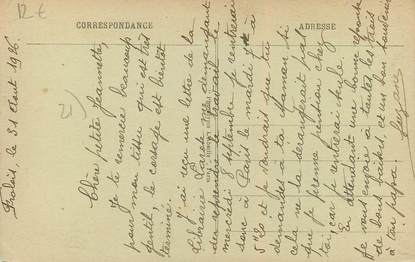 12 €
CORRESPONDANCE
ADRESSE
21
le 31 Août 1926
Chère petite Jeannette,
Je te remercie beaucoup
pour mon tissu qui est très
gentil, le corsage est bientôt
terminé.
J'ai reçu une lettre de la
Librairie me demandant
de reprendre le travail le
mercredi 8 septembre je rentrerai
donc à Paris le mardi 7 à
et je voudrais que tu
demandes à ta maman si
cela ne la dérangerait pas
que je prenne pension chez
toi, car je rentrerai seule.
En attendant une bonne réponse
je vous envoie à toutes les trois
de bons baisers et un bon bonjour
à ton papa